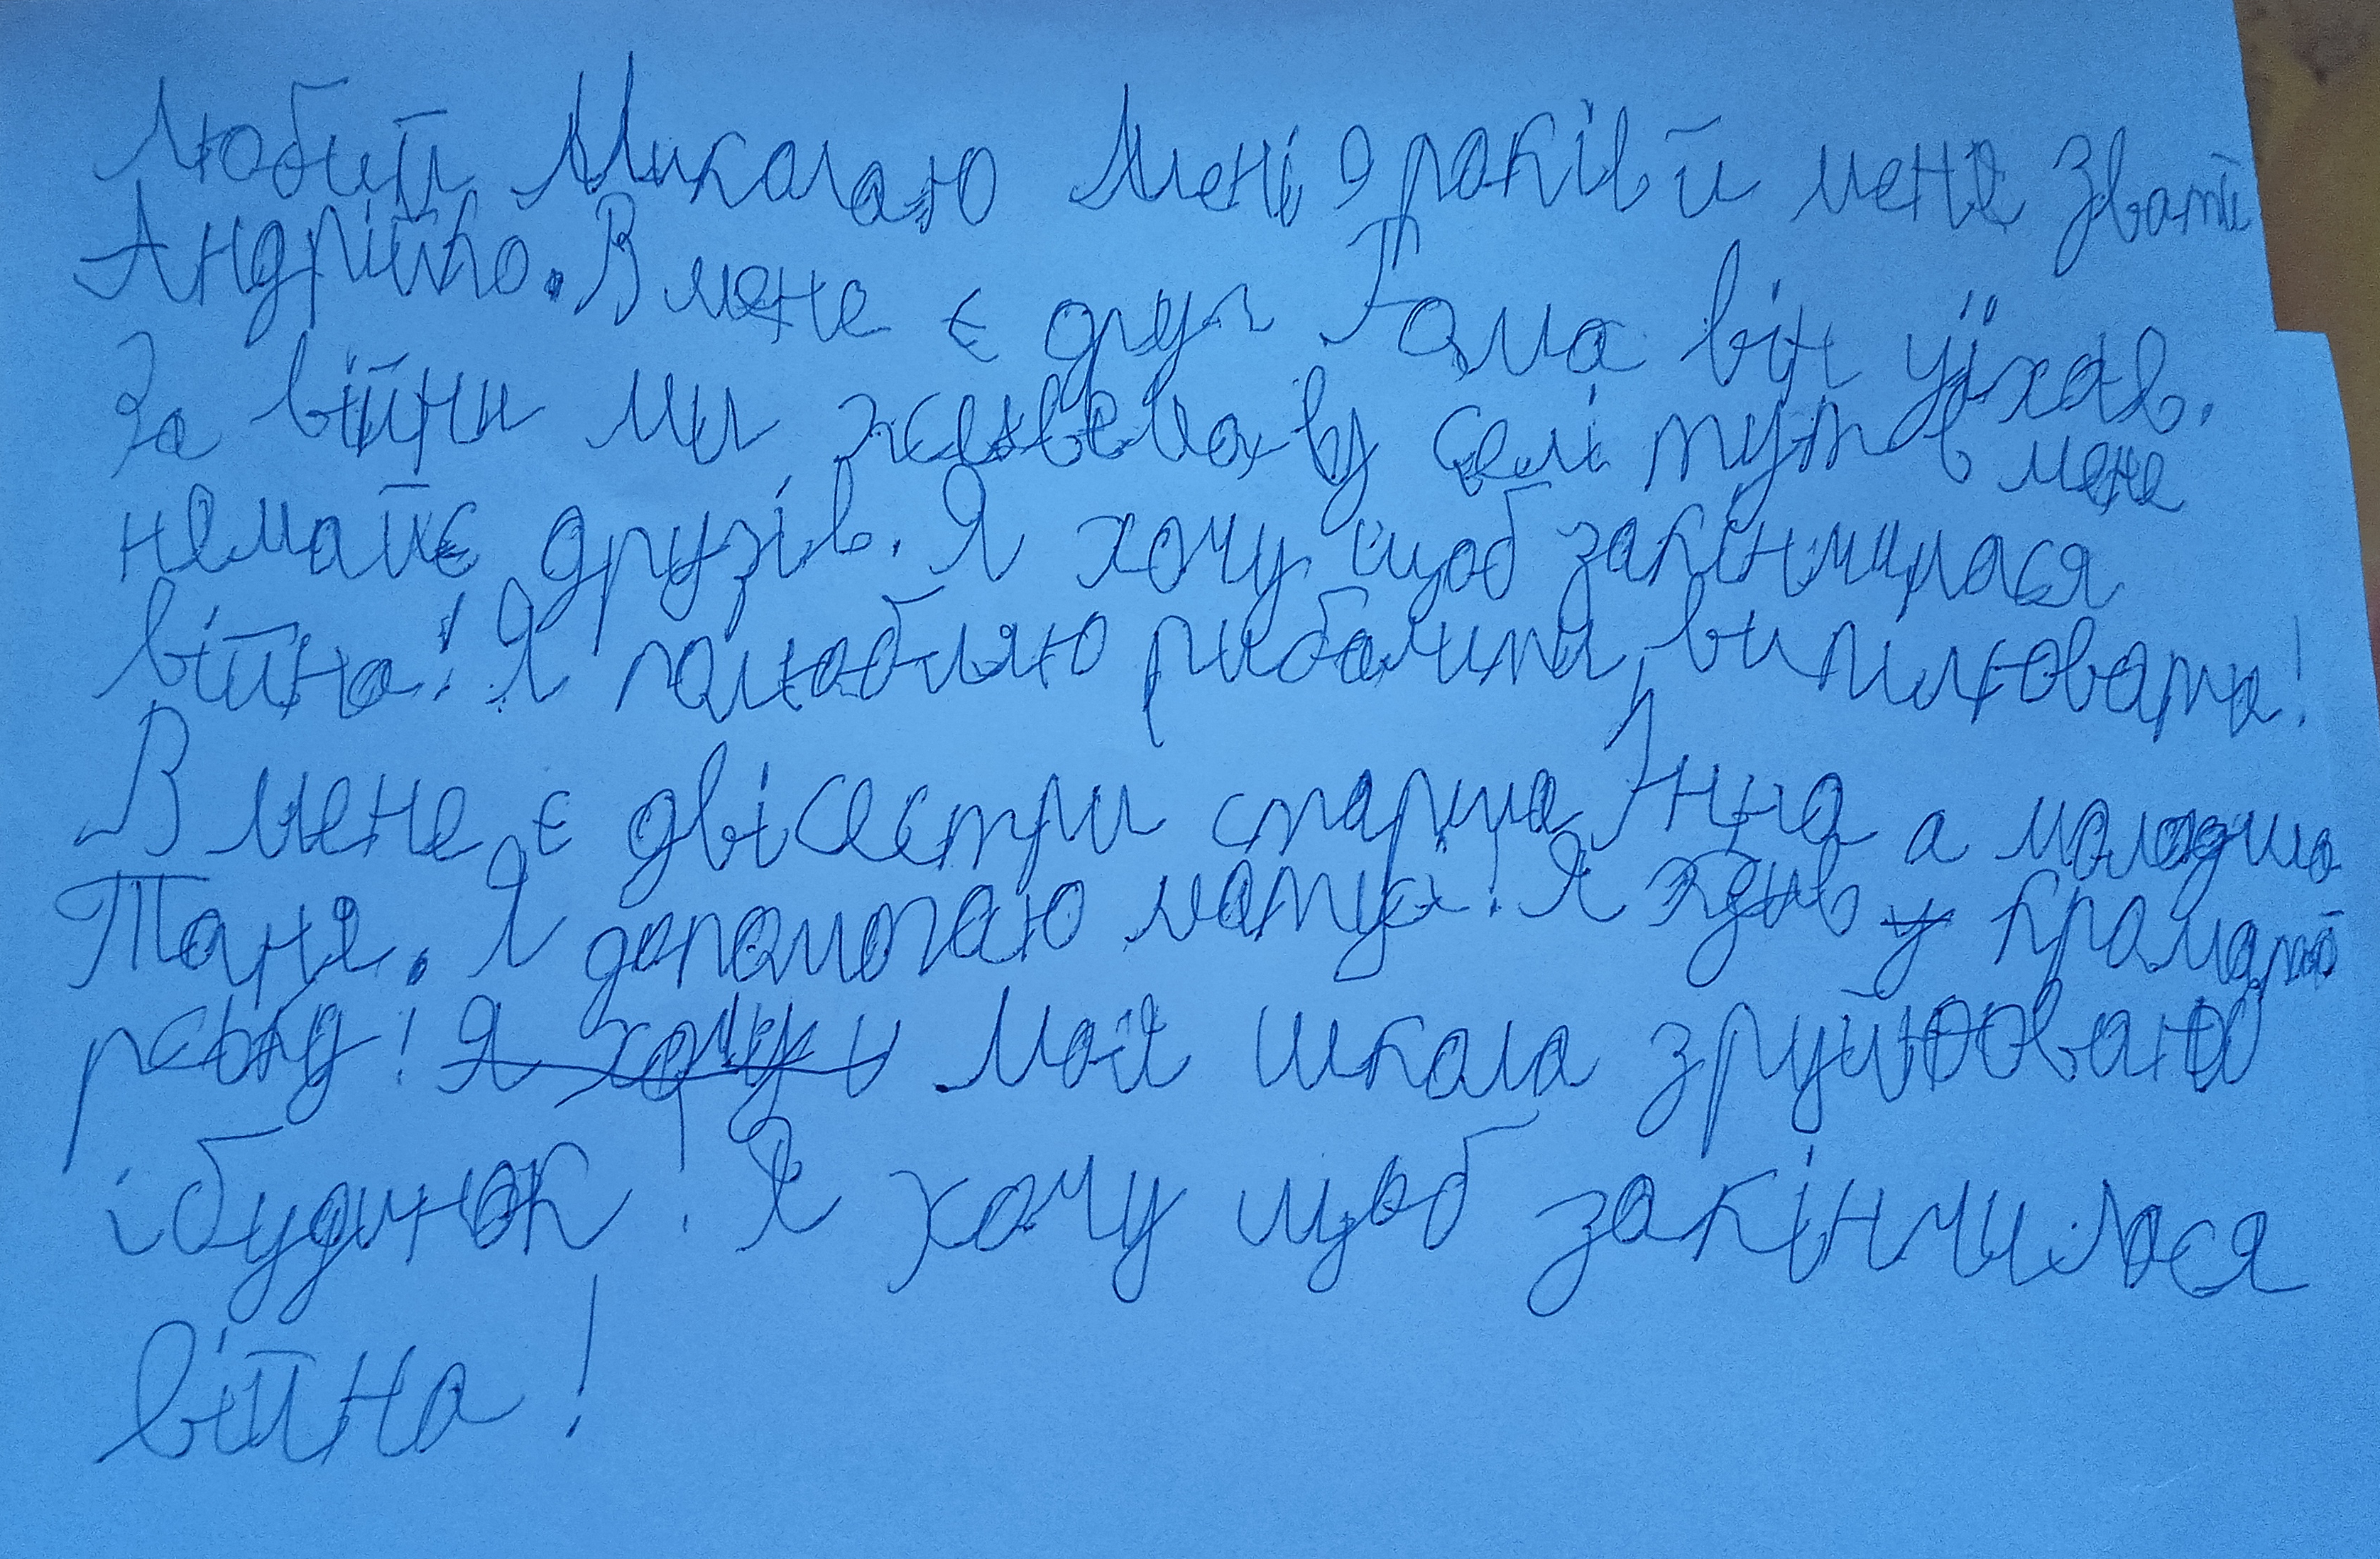 Любий Миколаю Мені 9 років й мене звати
Андрійко. В мене є друг Рома він уїхав.
За війни ми живемо в селі тут в мене
немайє друзів. Я хочу щоб закінчилася
війна! Я полюбляю рибалити, випилювати!
В мене є двісестри старша Інна а молодша
Таня. Я допомогаю матусі! Я жив у Крамато
рську! Я хочу и Моя школа зруйновано
і будинок! Я хочу щоб закінчилася
війна!